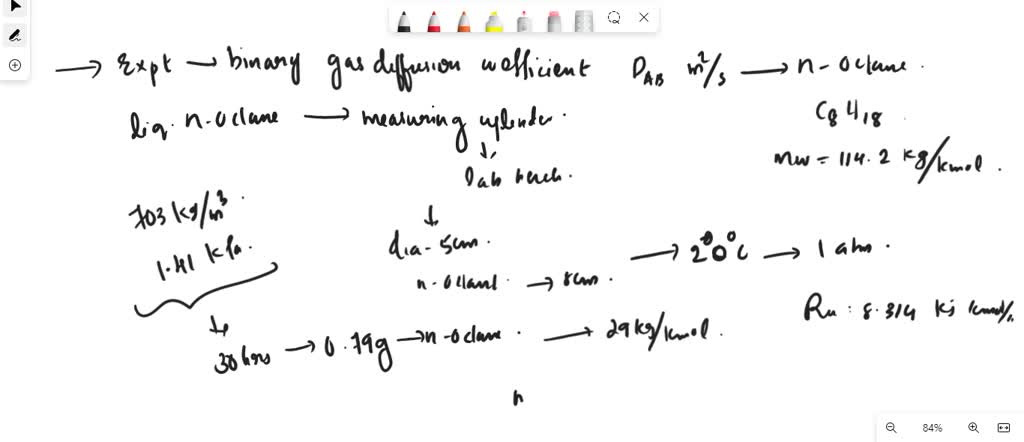 → Expt → binary gas diffusion coefficient D_AB m²/s → n-octane.
liq. n-octane → measuring cylinder.
C8H18
Mw = 114.2 kg/kmol.
↓
lab bench.
703 kg/m³.
1.41 kPa.
↓
dia - 5cm.
→ 20°C → 1 atm.
n-octane → 8cm.
Ru : 8.314 kj kmol/
↓
30 hrs → 0.79g → n-octane. → 29 kg/kmol.
n
84%